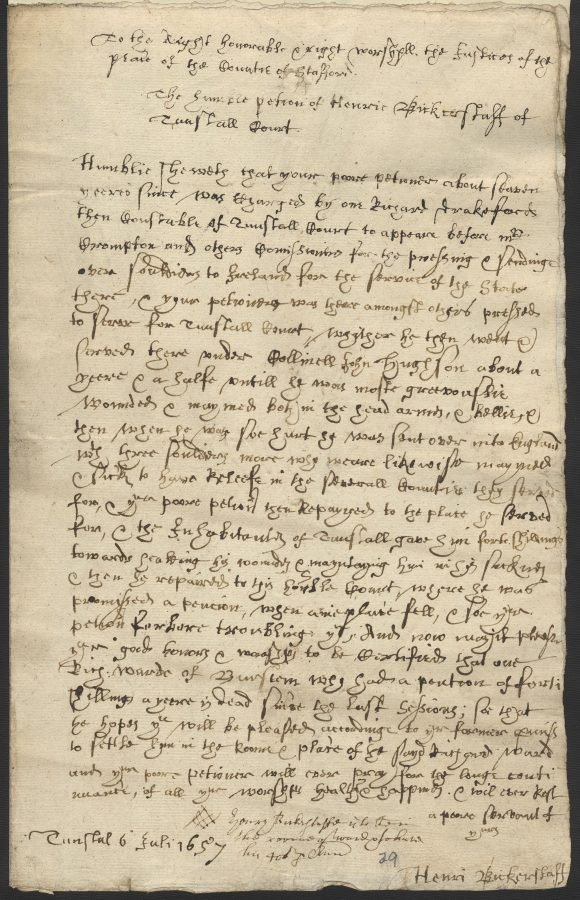 To the Right honorable & right worshpll the Justices of the
peace of the Countie of Stafford
The humble petion of Henrie Bickerstaff of
Tunstall Court
Humblie Sheweth that your poore petioner about seaven
yeeres since was Charged by one Richard Drakeford
then Constable of Tunstall Court to appeare before mr
Crompton and others Comissioners for the pressing & sending
over souldiers to Ireland for the service of the State
there, & your petioner was there amongst others pressed
to serve for Tunstall Court, whither he then went &
served there under Collinell John Hughson about a
yeere & a halfe untill he was moste greevouslie
wounded & maymed both in the head armes, & bellie, &
then when he was soe hurt he was sent over into England
wth three souldiers more who weare likewise maymed
& sicke to have Releefe in the severall Counties they served
for, & yor poore petionr then Repayred to the place he served
for, & the Inhabitants of Tunstall gave him fortie shillings
towards healeing his wounds & mayntaying him in his sicknes
& then he repaired to this honble Court, where he was
promissed a pencion, when anie place fell, & soe yor
petionr forbore troubling yu, And now may it please
yor good honors & worships to be Certified that one
Rich: Warde of Burslem who had a pention of fortie
shillings a yeere is dead since the last Sessions; soe that
he hopes yu will be pleased accordinge to yor former promiss
to settle him in the Roome & place of the sayd Richard Ward
and yor poore petioner will ever pray for the longe conti
nuance, of all yor worships health & happines & will ever rest
a poore servant of
yours
Henry Bickerstaffe to
the roome of ward
Tunstal 6 Juli 1657
29
Henri Bickerstaff